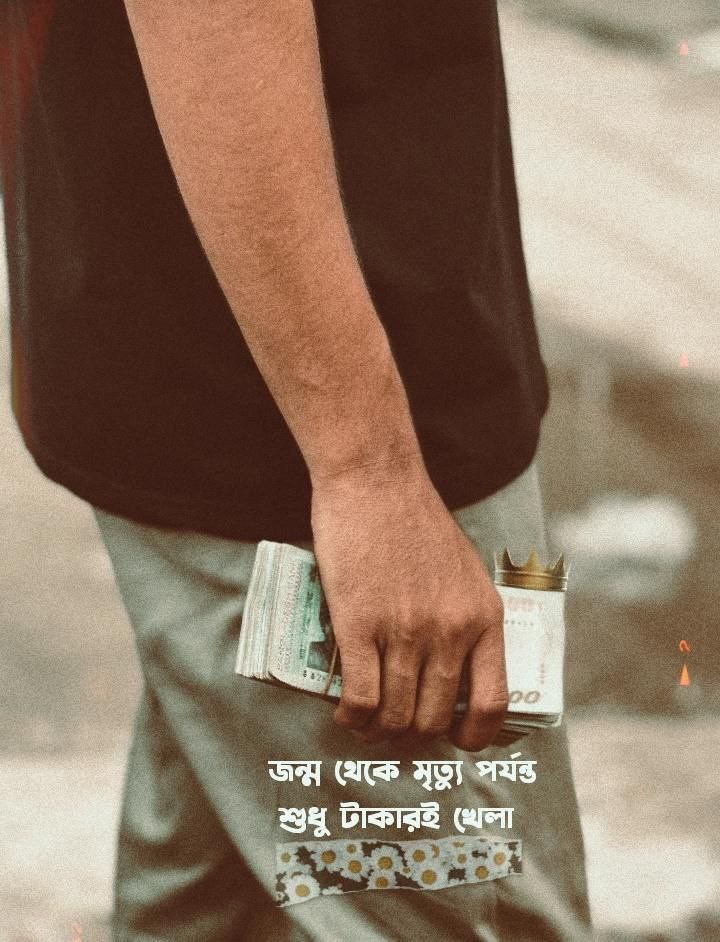 জন্ম থেকে মৃত্যু পর্যন্ত
শুধু টাকারই খেলা